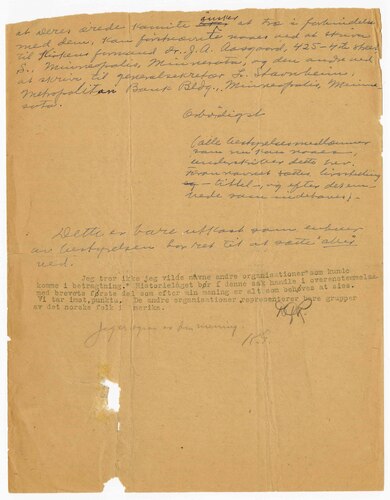 at deres ærede komite ønsker at træ i forbindelse
med dem, kan fornævnte naaes ved at skrive
til kirkens formand Dr. J. A. Aasgaard, 425-4th Str.
S., Minneapolis, Minnesota, og den andre ved
at skrive til generalsekretær
Metropolitan Bank Bldg., Minneapolis, Minne-
sota.
Ærbødigst
(alle bestyrelsesmedlemmer
som nu kan naaes,
underskriver dette brev.
navnet sættes
og - tittel -, og efter dersom
Dette er bare utkast som enhver
av bestyrelsen har ret til at sætte "abis"
ved.
Jeg tror ikke jeg vilde nævne andre organisationer som kunde
komme i betragtning. Historielaget bør i denne sak handle i overenstemmelse
med brevets første del som efter min mening er alt som behøves at sies.
Vi tar imot, punktum. De andre organisationer representerer bare grupper
av det norske folk i Amerika.
Jeg er enig i den mening